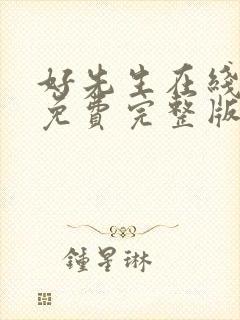 好先生在线
免費完整版
鍾星琳